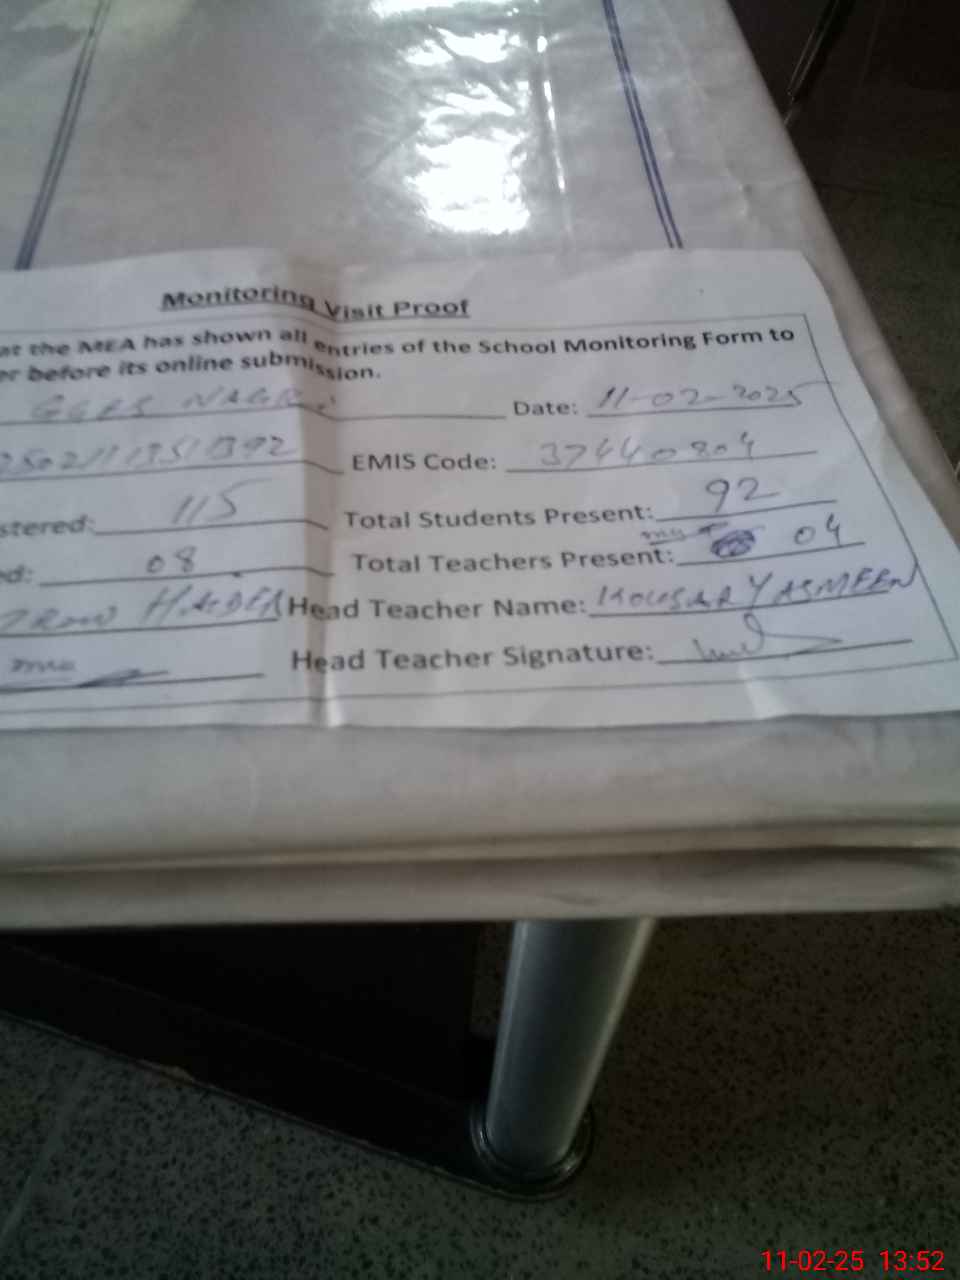 Monitoring Visit Proof
at the MEA has shown all entries of the School Monitoring Form to
er before its online submission.
GGPS NAGRI Date: 11-02-2025
EMIS Code: 37440804
stered: 115 Total Students Present: 92
ed: 08 Total Teachers Present: 04
HAIDER Head Teacher Name: KOUSAR YASMEEN
Head Teacher Signature:
11-02-25 13:52